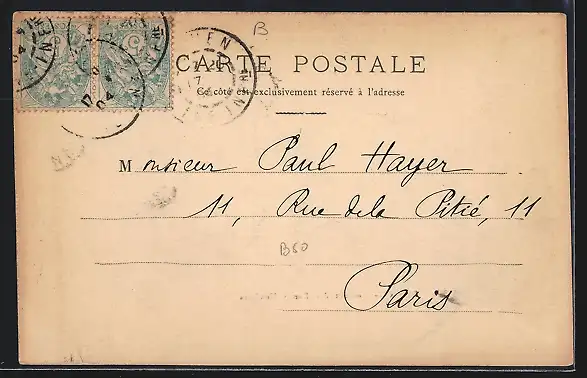 B
CARTE POSTALE
Ce côté est exclusivement réservé à l'adresse
Monsieur Paul Hayer
11, Rue de la Pitié, 11
B50
Paris